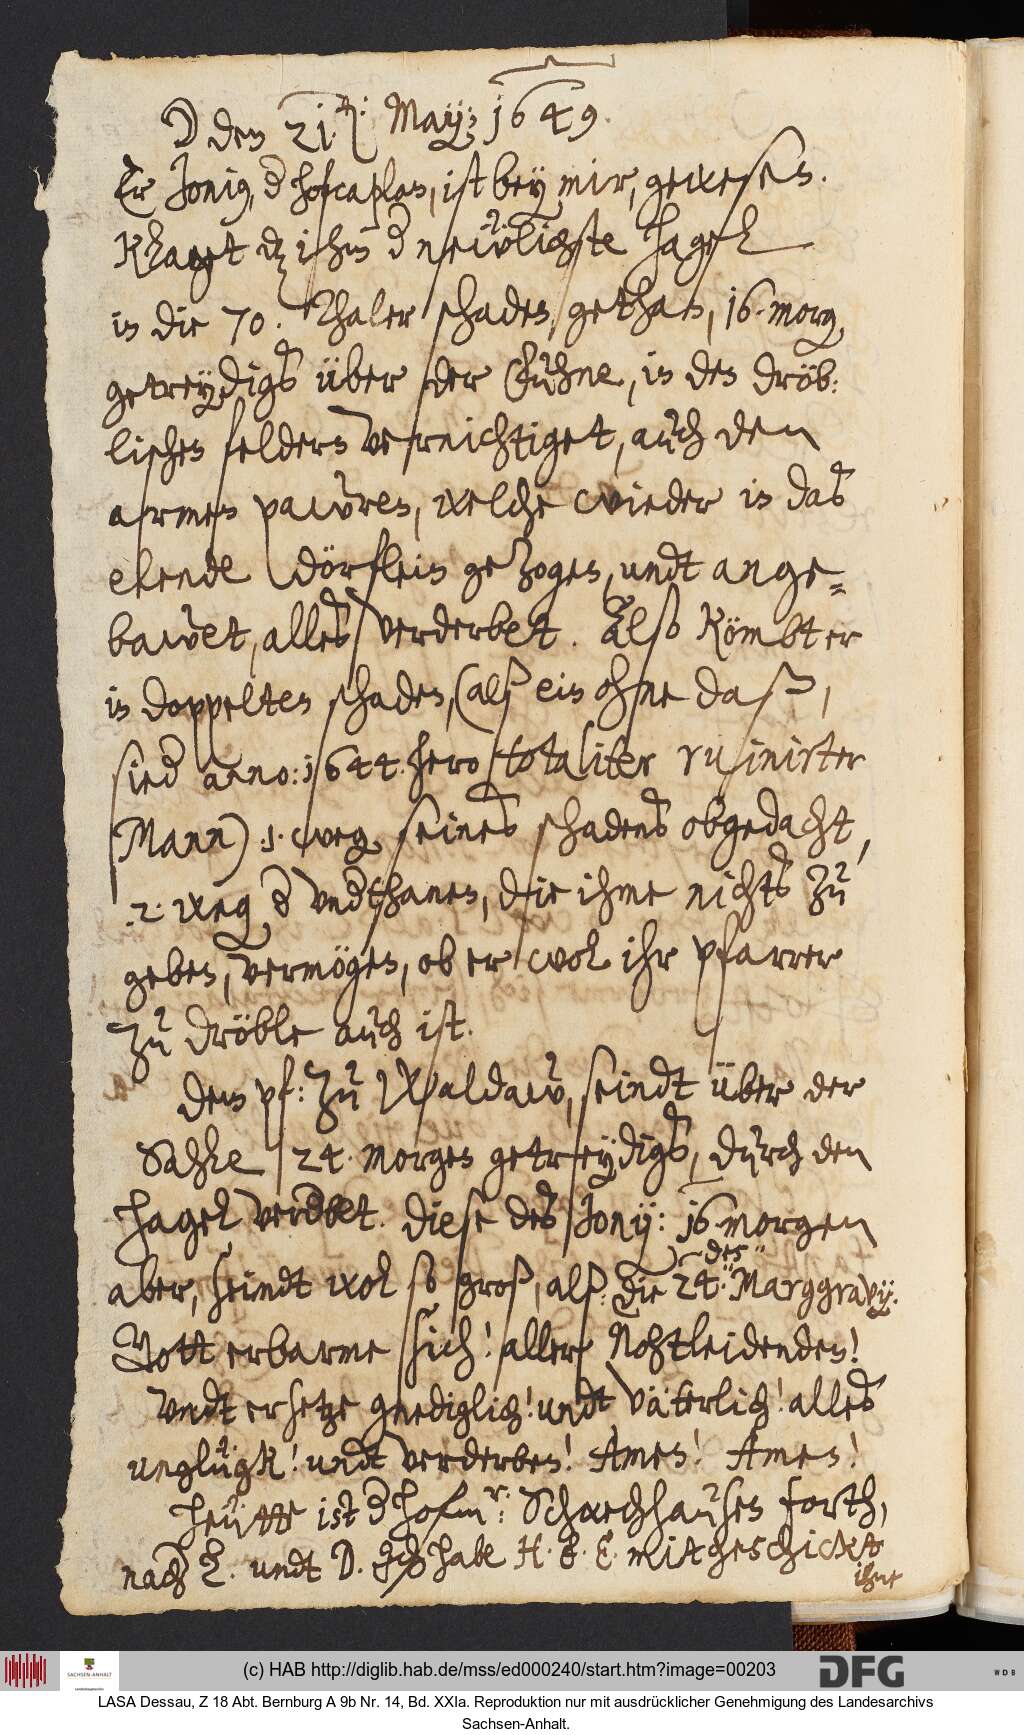 ☽ den 21.t: May: 1649.
Er Jonig, d hofcaplan, ist bey mir, gewesen.
Klaget dz ihm d neẅlichste Hagel
in die 70. Thaler schaden, gethan, 16. morg.
getreydigs über der Fuhne, in den dröb:
lischen feldern vernichtiget, auch den
armen pawren, welche wieder in das
elende dörflein gezogen, undt ange=
bawet, alles verderbet. Also kömbt er
in doppelten schaden, (alß ein ohne daß,
sied anno: 1644. hero totaliter ruinirter
Mann) .1. weg. seines schadens obgedacht,
.2. weg. d Vndthanen, die ihme nichts zu
geben, vermögen, ob er wol ihr pfarrer
zu dröble auch ist.
Dem pf: zu Waldaw, seindt über der
Sahle 24. morgen getreydigs, durch den
hagel verdbet. Diese des Jonij: 16. morgen
aber, seindt wol so groß, alß: die 24. des Marggravij.
Gott erbarme sich! aller Nohtleidenden!
Vndt ersetze gnediglich! undt väterlich! alles
unglügk! undt verderben! Amen! Amen!
Heütte ist d hofmr: Schwechhausen forth,
nach Z. undt D. Ich habe H. E. E. mitgeschickt
ihme
(c) HAB http://diglib.hab.de/mss/ed000240/start.htm?image=00203
SACHSEN-ANHALT
DFG
WDB
LASA Dessau, Z 18 Abt. Bernburg A 9b Nr. 14, Bd. XXIa. Reproduktion nur mit ausdrücklicher Genehmigung des Landesarchivs
Sachsen-Anhalt.